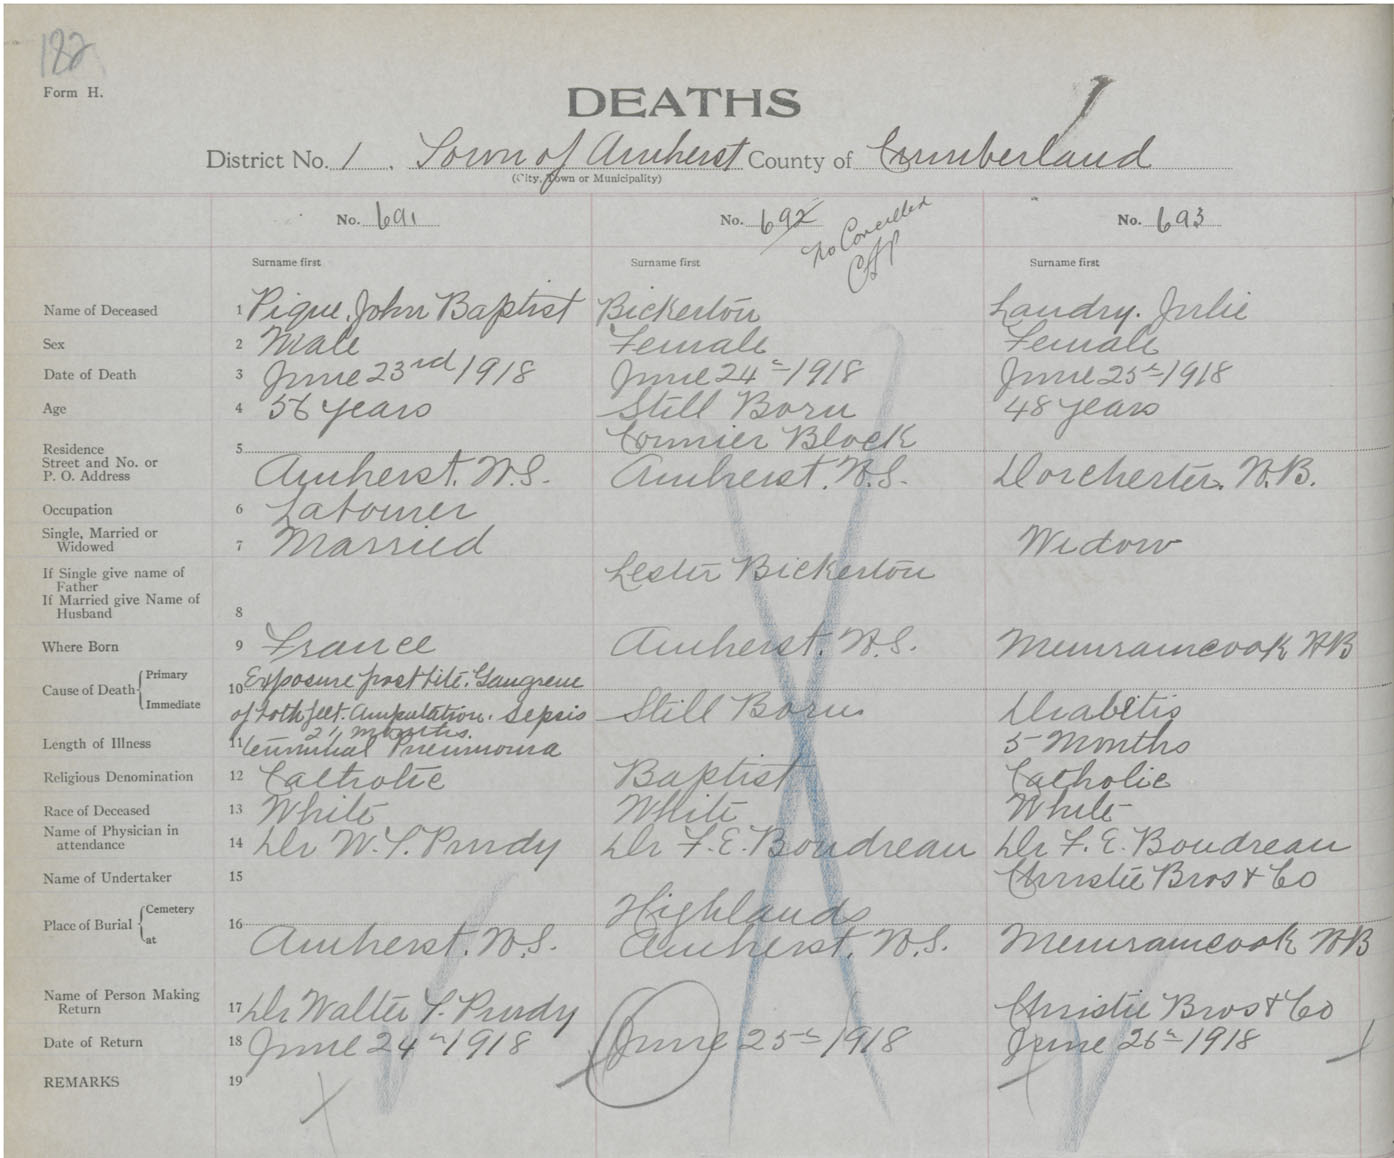 182
Form H.
DEATHS
District No. 1. Town of Amherst County of Cumberland
(City, Town or Municipality)
No. 691 No. 692 No. 693
No Cancelled
Surname first Surname first Surname first
Name of Deceased 1 Pique, John Baptist Bickerton Landry. Julie
Sex 2 Male Female Female
Date of Death 3 June 23rd 1918 June 24th 1918 June 25th 1918
Age 4 56 years Still Born 48 years
Cormier Block
Residence 5
Street and No. or
P. O. Address Amherst. N.S. Amherst. N.S. Dorchester. N.B.
Occupation 6 Labourer
Single, Married or
Widowed 7 Married Widow
If Single give name of
Father Lester Bickerton
If Married give Name of
Husband 8
Where Born 9 France Amherst. N.S. Memramcook NB
Cause of Death Primary 10 Exposure frost bite. Gangrene
Immediate of both feet. Amputation. Sepsis Still Born Diabetis
2½ months.
Length of Illness 11 terminal Pneumonia 5 Months
Religious Denomination 12 Catholic Baptist Catholic
Race of Deceased 13 White White White
Name of Physician in
attendance 14 Dr W. T. Purdy Dr F. E. Boudreau Dr F. E. Boudreau
Name of Undertaker 15 Christie Bros & Co
Place of Burial Cemetery 16 Highlands
at Amherst. N.S. Amherst. N.S. Memramcook NB
Name of Person Making
Return 17 Dr Walter T. Purdy Christie Bros & Co
Date of Return 18 June 24th 1918 June 25th 1918 June 26th 1918
REMARKS 19